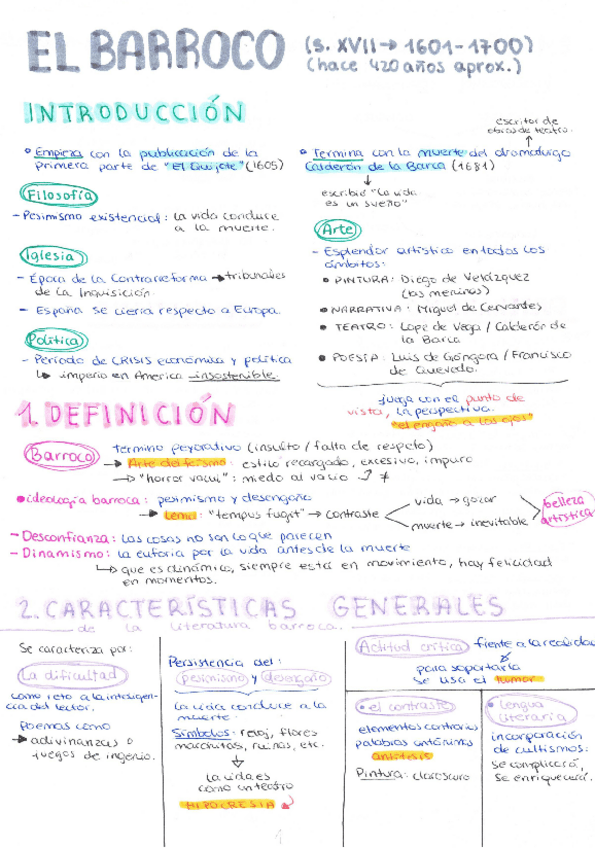 EL BARROCO (s. XVII → 1601-1700)
(hace 420 años aprox.)
INTRODUCCIÓN
escritor de
obras de teatro.
• Empieza con la publicación de la
primera parte de "El Quijote" (1605)
• Termina con la muerte del dramaturgo
Calderón de la Barca (1681)
escribió "La vida
es un sueño"
Filosofía
- Pesimismo existencial: la vida conduce
a la muerte.
Iglesia
- Época de la Contrarreforma → tribunales
de la Inquisición.
- España se cierra respecto a Europa.
Política
- Período de CRISIS económica y política
↳ imperio en America insostenible.
Arte
- Esplendor artístico en todos los
ámbitos:
• PINTURA: Diego de Velázquez
(las meninas)
• NARRATIVA: Miguel de Cervantes
• TEATRO: Lope de Vega / Calderón de
la Barca
• POESÍA: Luis de Góngora / Francisco
de Quevedo.
juega con el punto de
vista, la perspectiva.
"el engaño a los ojos"
1. DEFINICIÓN
Barroco
término peyorativo (insulto / falta de respeto)
→ Arte del feísmo: estilo recargado, excesivo, impuro
→ "horror vacui": miedo al vacío
• ideología barroca: pesimismo y desengaño
→ Lema: "tempus fugit" → contraste
vida → gozar
muerte → inevitable
belleza
artística
- Desconfianza: las cosas no son lo que parecen
- Dinamismo: la euforia por la vida antes de la muerte
↳ que es dinámico, siempre está en movimiento, hay felicidad
en momentos.
2. CARACTERÍSTICAS GENERALES
de la literatura barroca.
Se caracteriza por:
La dificultad
como reto a la inteligen-
cia del lector.
Poemas como
→ adivinanzas o
juegos de ingenio.
Persistencia del:
pesimismo y desengaño
La vida conduce a la
muerte.
Símbolos: reloj, flores
marchitas, ruinas, etc.
la vida es
como un teatro
HIPOCRESIA
Actitud crítica frente a la realidad
para soportarla
se usa el humor
• el contraste
elementos contrarios
palabras antónimas
antítesis
Pintura: claroscuro
• Lengua
literaria
incorporación
de cultismos:
se complicará,
se enriquecerá.
1